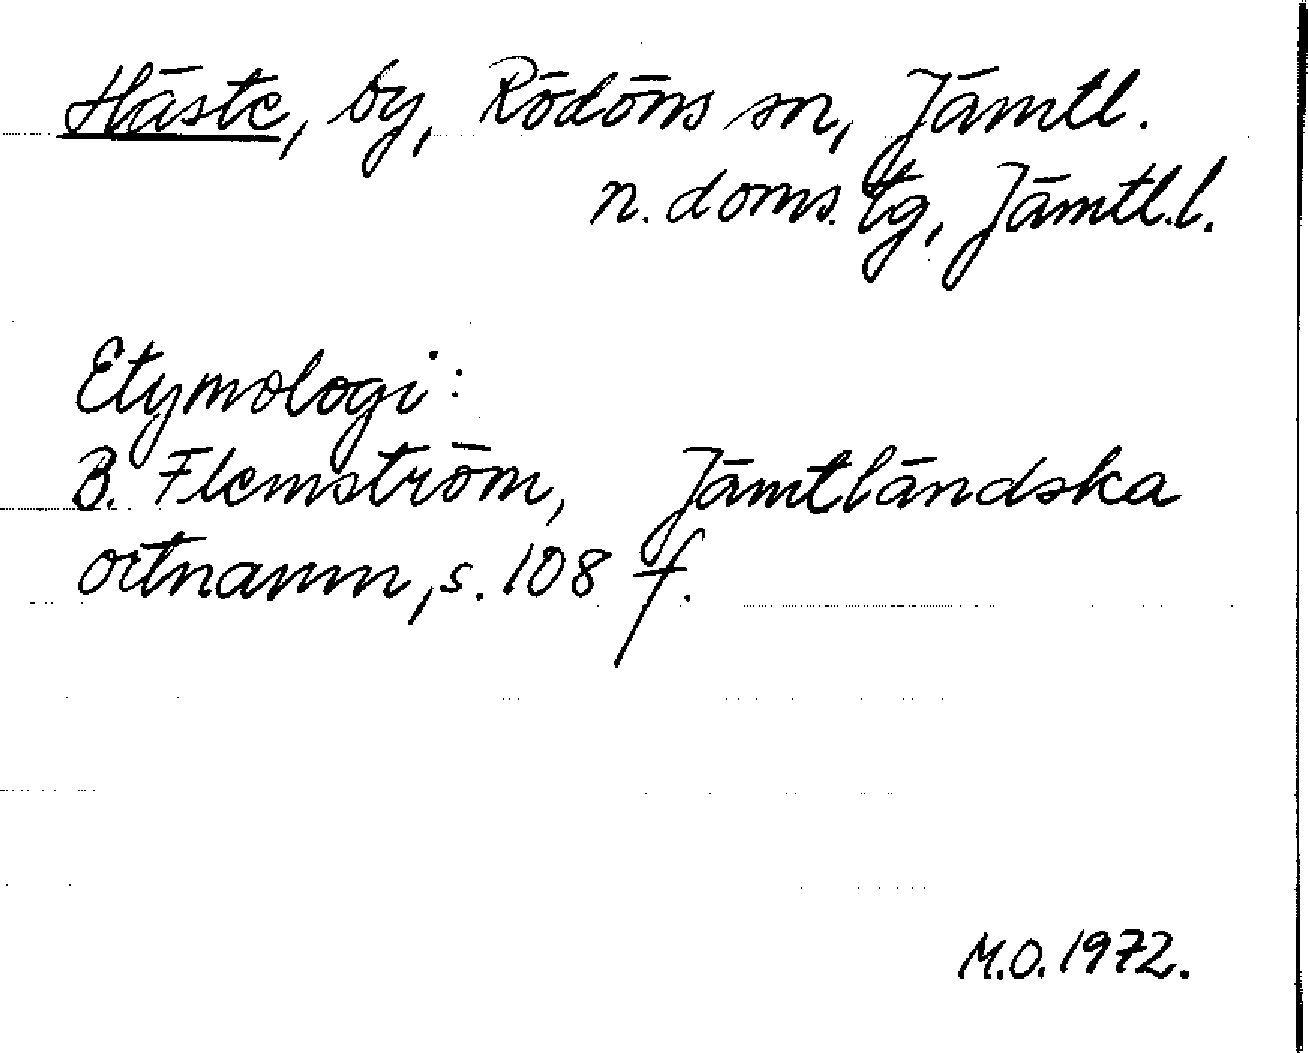 Häste, by, Rödöns sn, Jämtl.
n. doms. tg, Jämtl.l.
Etymologi:
B. Flemström, Jämtländska
ortnamn, s. 108 f.
M.O. 1972.